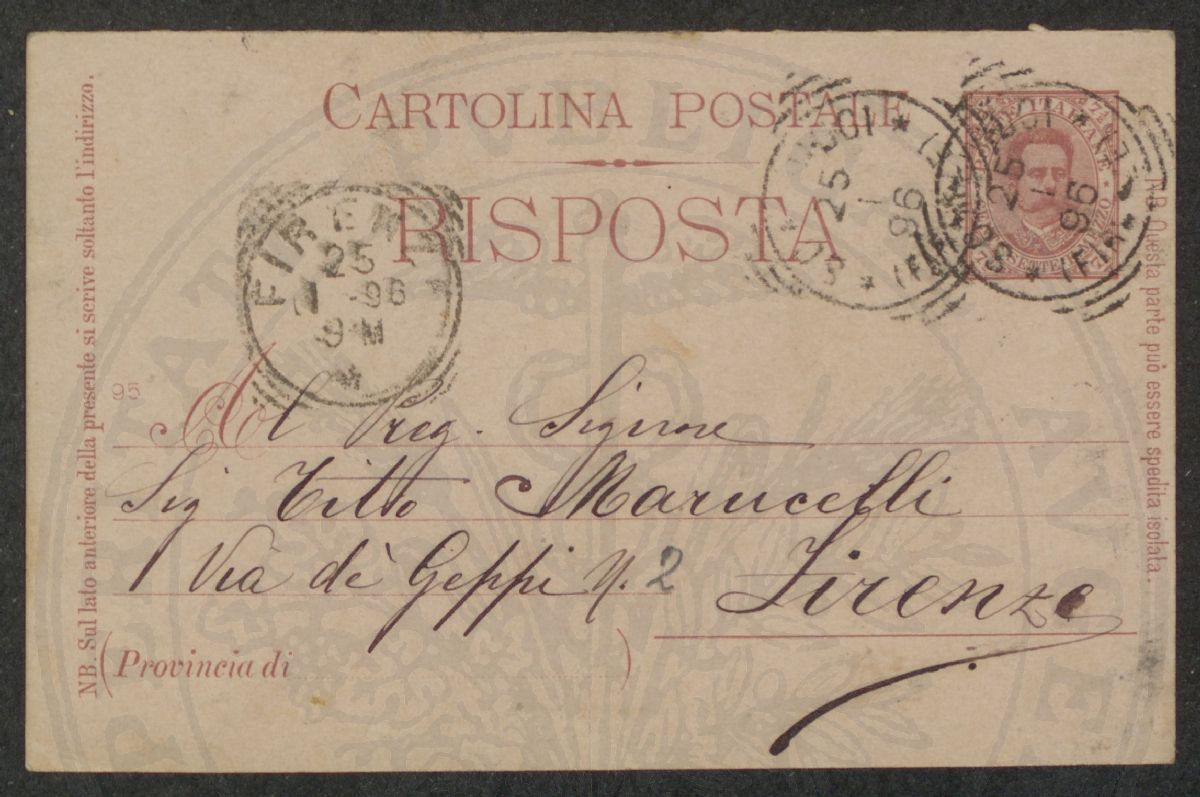 CARTOLINA POSTALE
RISPOSTA
FIRENZE
25
1-96
9 M
25
1
96
25
1
96
NB. Sul lato anteriore della presente si scrive soltanto l'indirizzo.
NB Questa parte può essere spedita isolata.
95
Al Preg. Signore
Sig Titto Marucelli
Via dè Geppi N. 2 Firenze
(Provincia di )